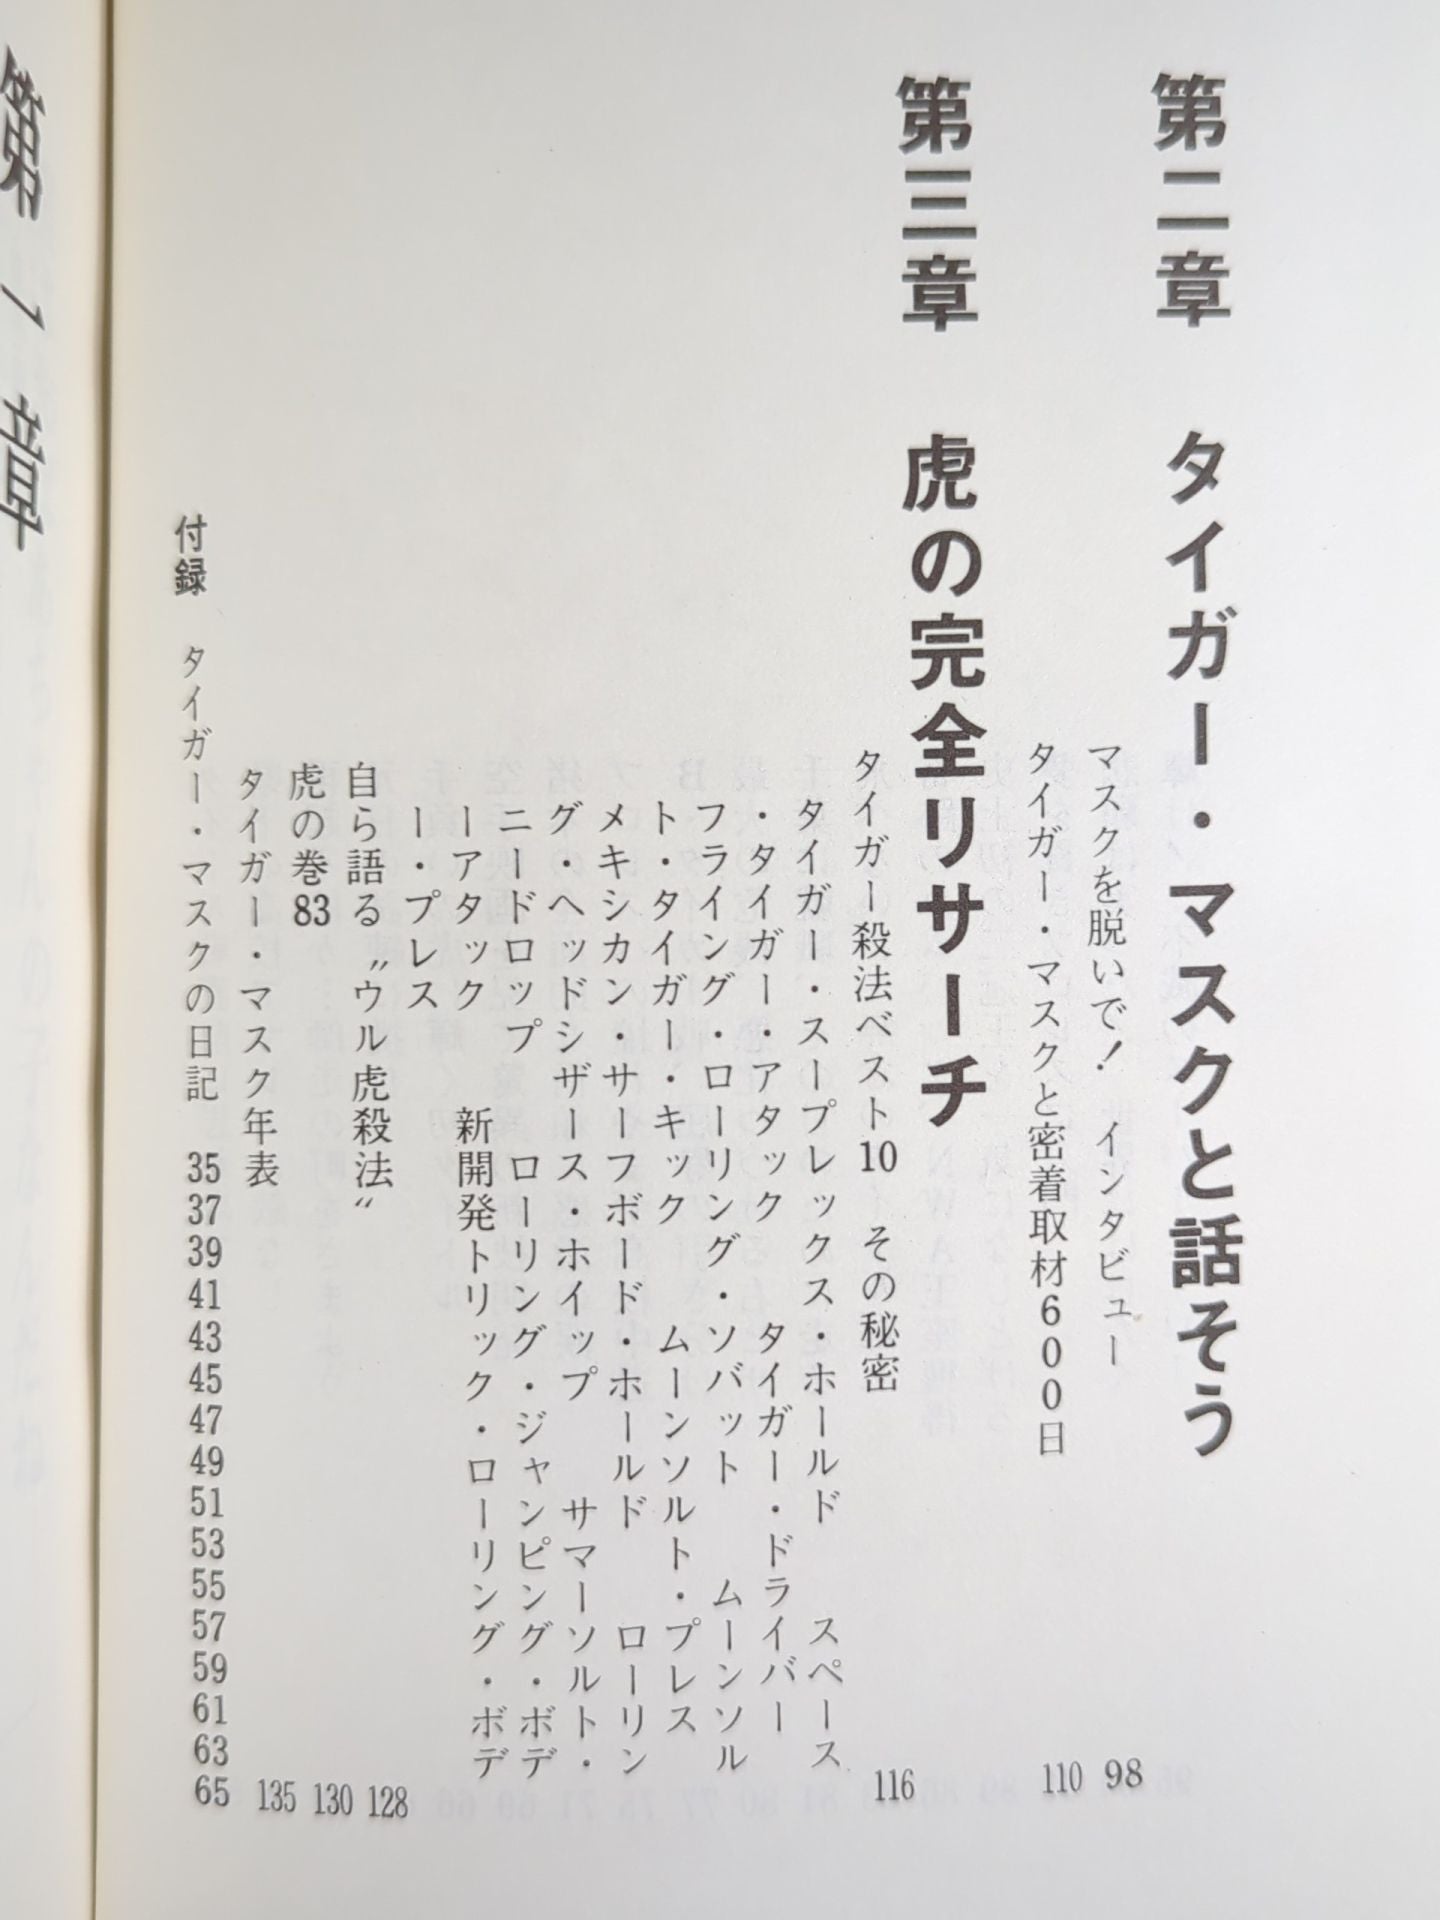 第二章　タイガー・マスクと話そう
マスクを脱いで！　インタビュー　98
タイガー・マスクと密着取材600日　110
第三章　虎の完全リサーチ
タイガー殺法ベスト10　その秘密　116
タイガー・スープレックス・ホールド　スペース
・タイガー・アタック　タイガー・ドライバー
フライング・ローリング・ソバット　ムーンソル
ト・タイガー・キック　ムーンソルト・プレス
メキシカン・サーフボード・ホールド　ローリン
グ・ヘッドシザース・ホイップ　サマーソルト・
ニードロップ　ローリング・ジャンピング・ボデ
ーアタック　新開発トリック・ローリング・ボデ
ー・プレス
自ら語る〝ウル虎殺法〟　128
虎の巻83　130
タイガー・マスク年表　135
付録　タイガー・マスクの日記　35 37 39 41 43 45 47 49 51 53 55 57 59 61 63 65
第1章